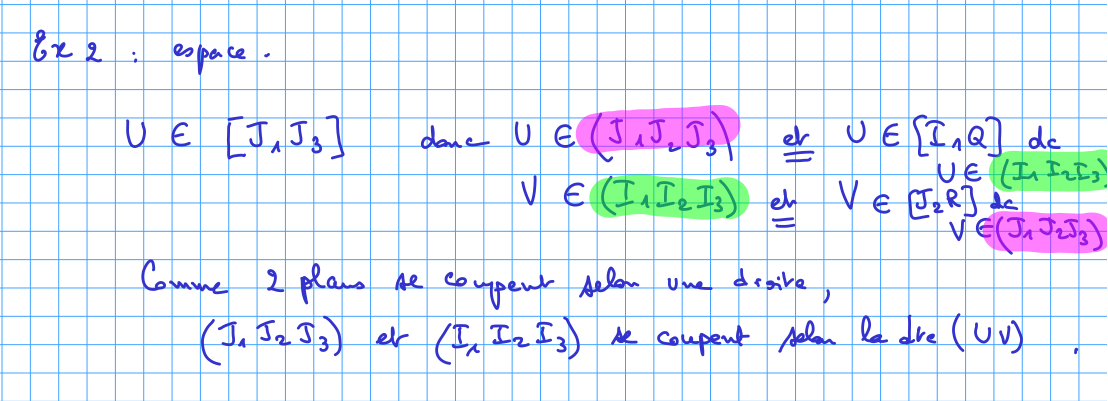 Ex 2 : espace.
U ∈ [J₁J₃] donc U ∈ (J₁J₂J₃) et U ∈ [I₁Q] dc
U ∈ (I₁I₂I₃)
V ∈ (I₁I₂I₃) et V ∈ [J₂R] dc
V ∈ (J₁J₂J₃)
Comme 2 plans se coupent selon une droite,
(J₁J₂J₃) et (I₁I₂I₃) se coupent selon la dte (UV).